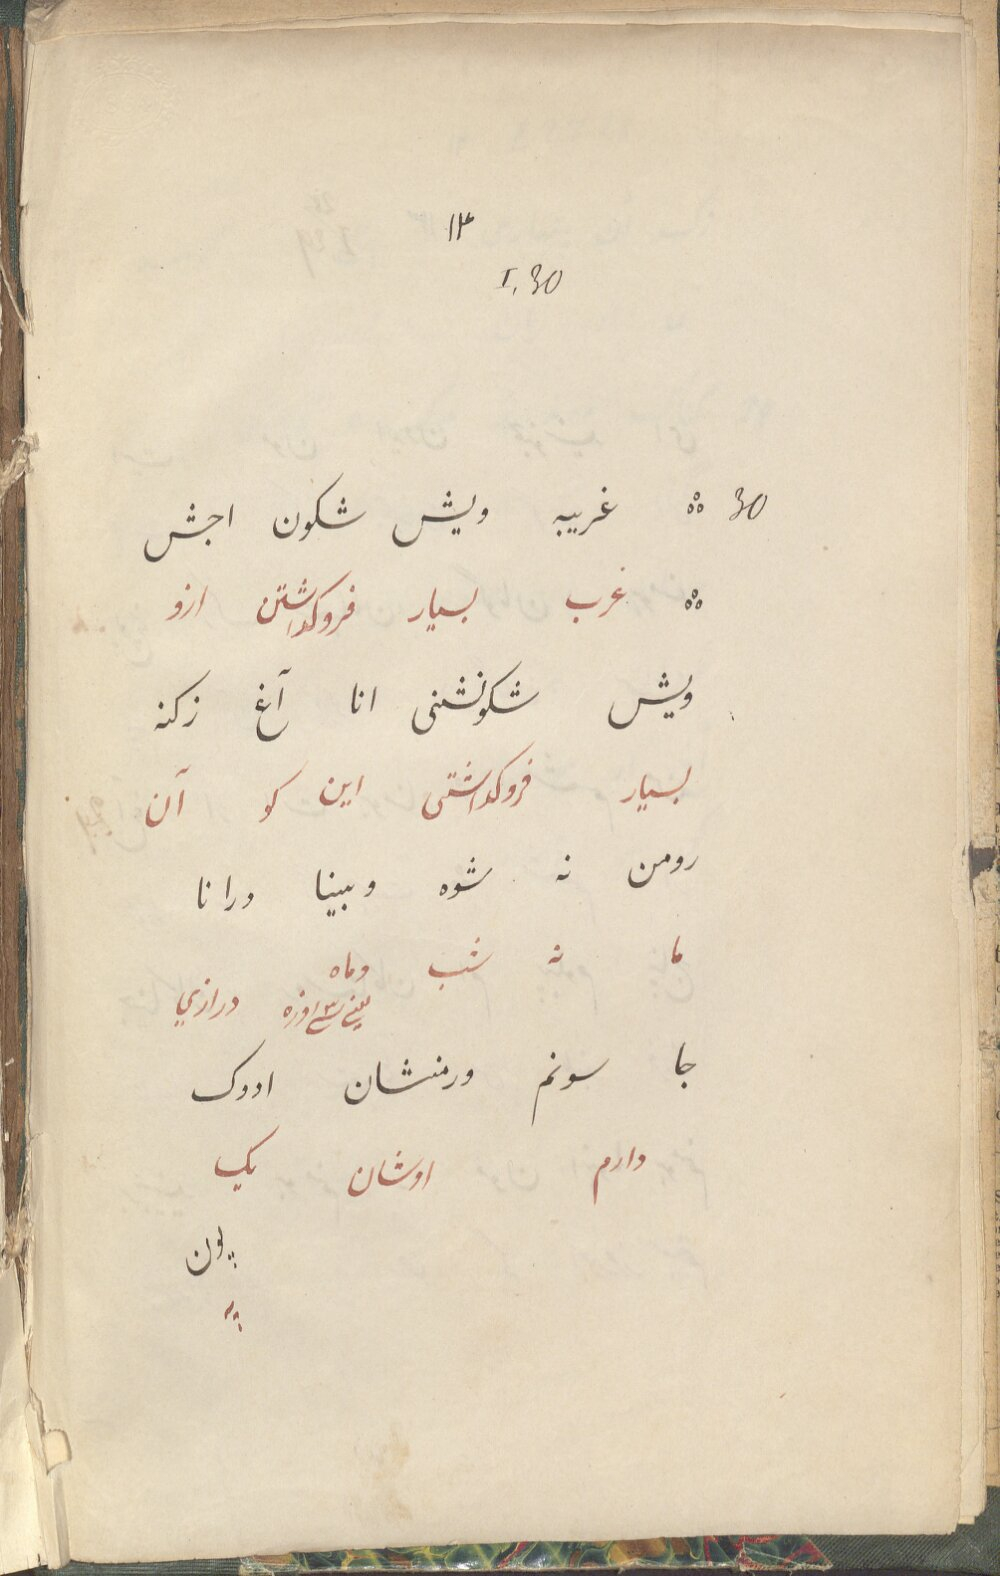 ۱۴
I, 30
30 ؞ غریبه ویش شکون اجش
؞ غرب بسیار فروگذاشتن ازو
ویش شکونشنی انا آغ زکنه
بسیار فروگذاشتی این کو آن
رومن نه شوه وبینا ورانا
ما نه شب وماه
یعنی ۳ روزه درازي
جا سونم ورمنشان ادوک
دارم اوشان یک
پون
په